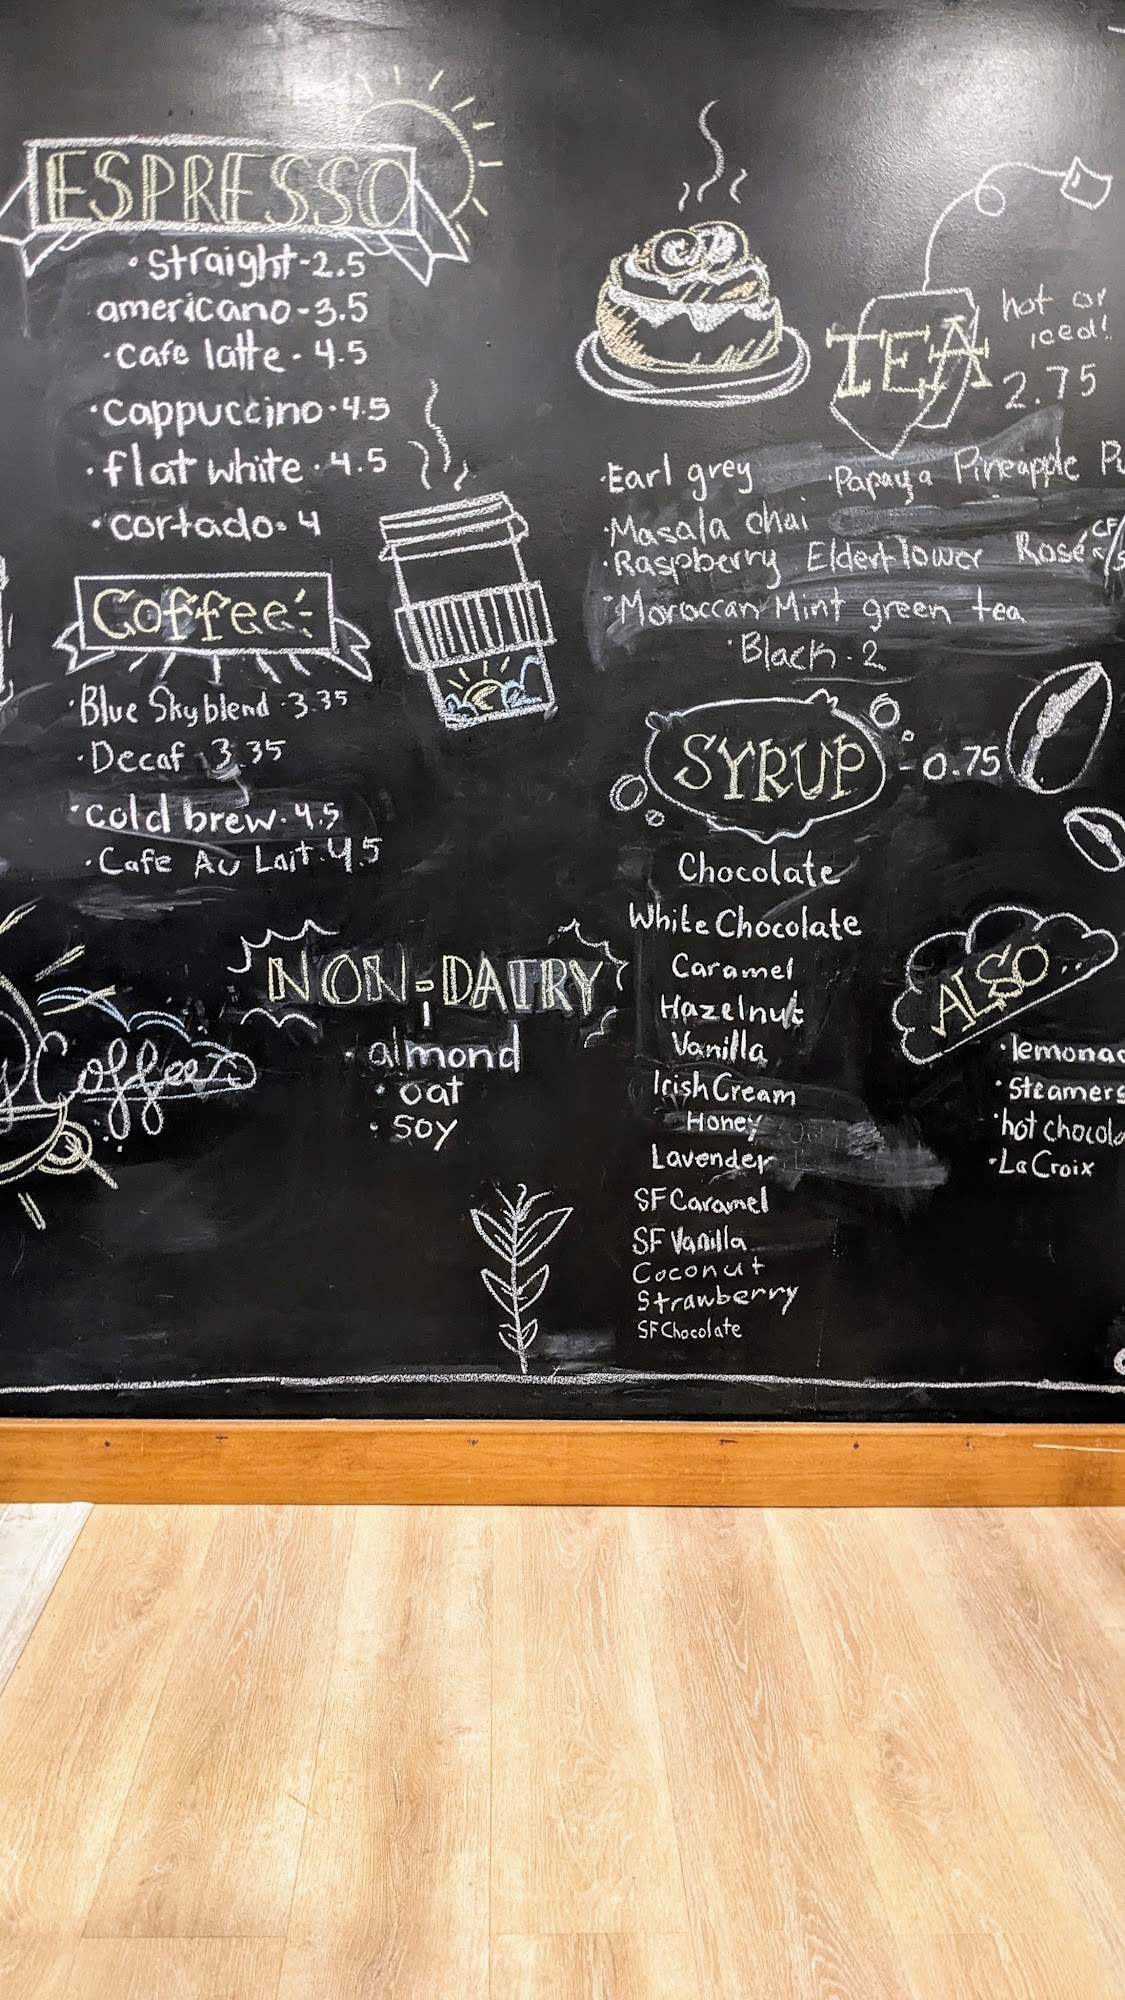 ESPRESSO
·straight-2.5
americano-3.5
·cafe latte-4.5
·cappuccino·4.5
·flat white·4.5
·cortado·4
Coffee
·Blue Sky blend·3.35
·Decaf 3.35
·cold brew·4.5
·Cafe Au Lait·4.5
Coffee
NON-DAIRY
·almond
·oat
·soy
TEA
hot or
iced!
2.75
·Earl grey ·Papaya Pineapple
·Masala chai
·Raspberry Elderflower Rosé CF
·Moroccan Mint green tea
·Black·2
SYRUP -0.75
Chocolate
White Chocolate
Caramel
Hazelnut
Vanilla
Irish Cream
Honey
Lavender
SF Caramel
SF Vanilla
Coconut
Strawberry
SF Chocolate
ALSO..
·lemonad
·steamers
·hot chocola
·LaCroix